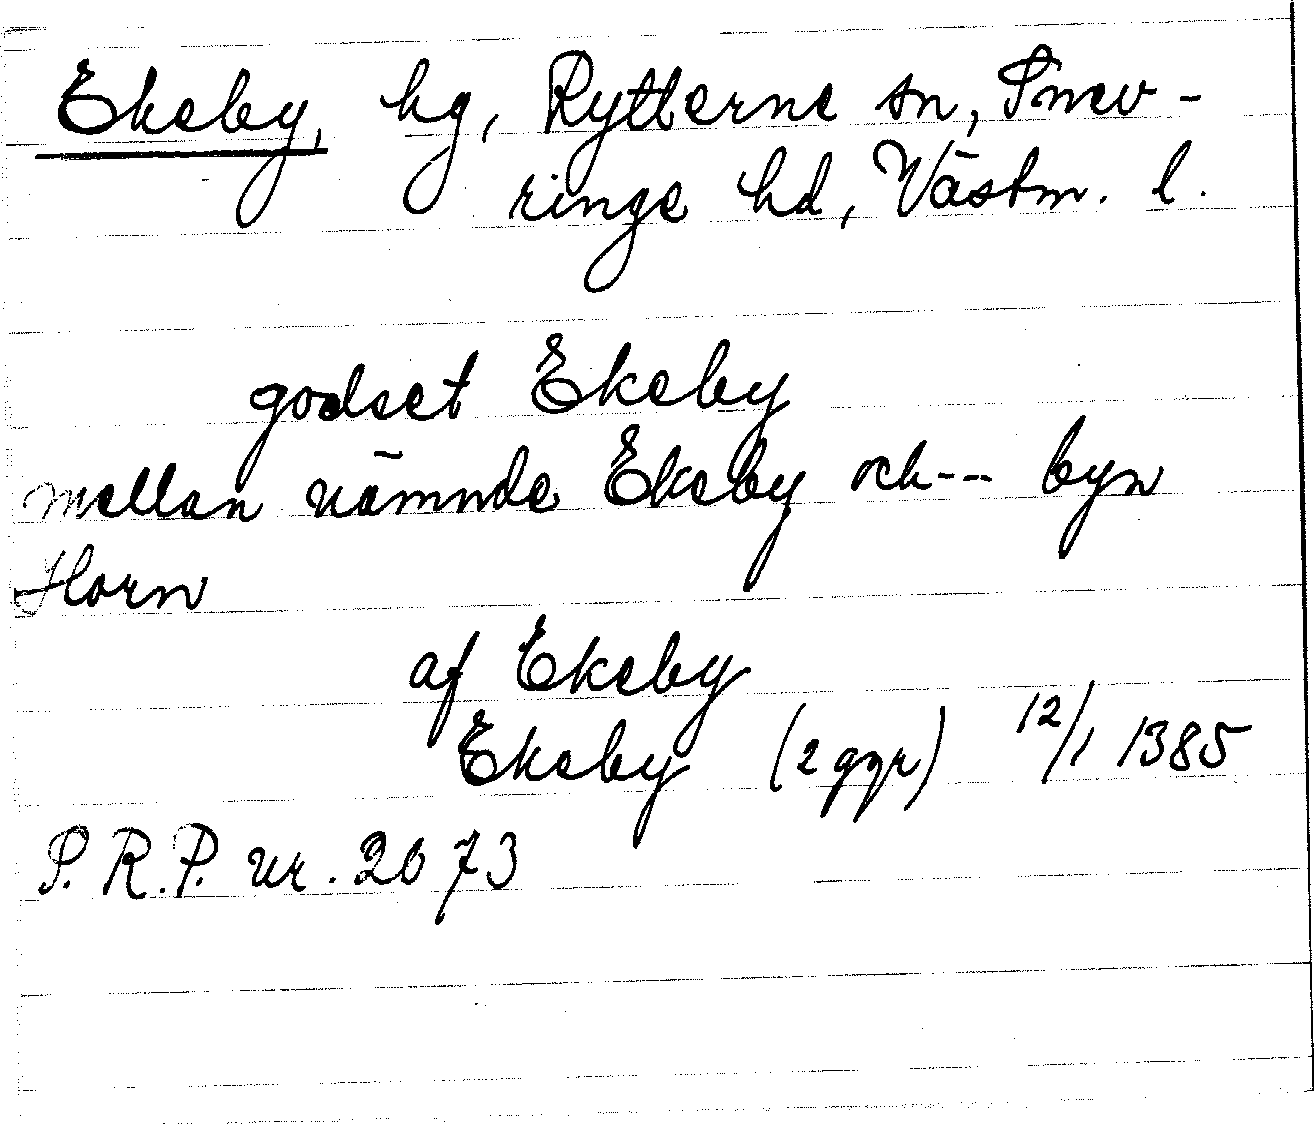 Ekeby, hg, Rytterne sn, Snev-
ringe hd, Västm. l.
godset Ekeby
mellan nämnde Ekeby och --- byn
Horn
af Ekeby
Ekeby (2 ggr) 12/1 1385
S.R.P. nr. 2073